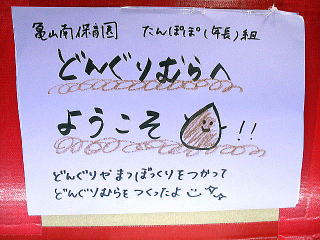 亀山南保育園 たんぽぽ(年長)組
どんぐりむらへ
ようこそ!!
どんぐりやまつぼっくりをつかって
どんぐりむらをつくったよ